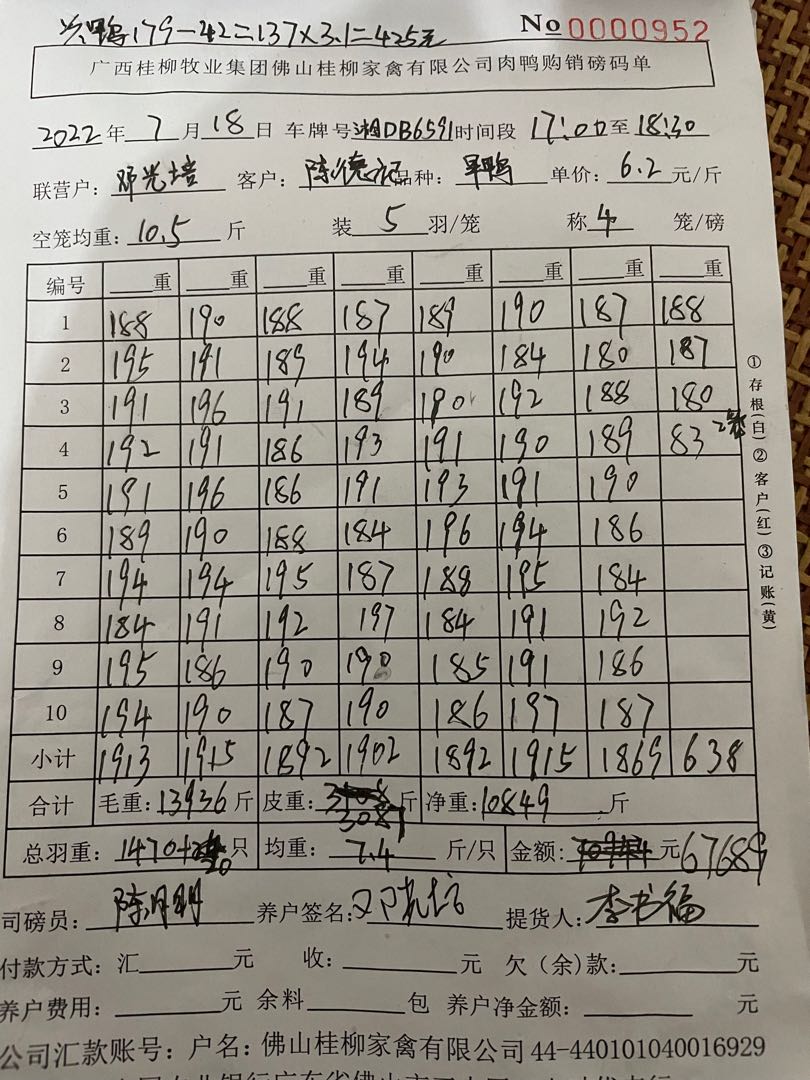 兴鸭179-42=137×3.1=425元
No 0000952
广西桂柳牧业集团佛山桂柳家禽有限公司肉鸭购销磅码单
2022年7月18日 车牌号湘DB6591时间段17:00至18:30
联营户: 邓光培 客户: 陈德 品种: 单价: 6.2元/斤
空笼均重: 10.5斤 装5羽/笼 称4笼/磅
编号 重 重 重 重 重 重 重 重
1 188 190 188 187 189 190 187 188
2 195 191 189 194 190 184 180 187
3 191 196 191 189 190 192 188 180
4 192 191 186 193 191 190 189 83 2笼
5 191 196 186 191 193 191 190
6 189 190 188 184 196 194 186
7 194 194 195 187 188 195 184
8 184 191 192 197 184 191 192
9 195 186 190 190 185 191 186
10 194 190 187 190 186 197 187
小计 1913 1915 1892 1902 1892 1915 1869 638
合计 毛重:13936斤 皮重: 3087斤 净重:10849斤
总羽重: 1470+20只 均重: 7.4斤/只 金额: 元67689
司磅员: 陈月明 养户签名: 提货人: 李书福
付款方式: 汇 元 收: 元 欠(余)款: 元
养户费用: 元 余料 包 养户净金额: 元
公司汇款账号: 户名: 佛山桂柳家禽有限公司44-440101040016929
①存根(白)②客户(红)③记账(黄)